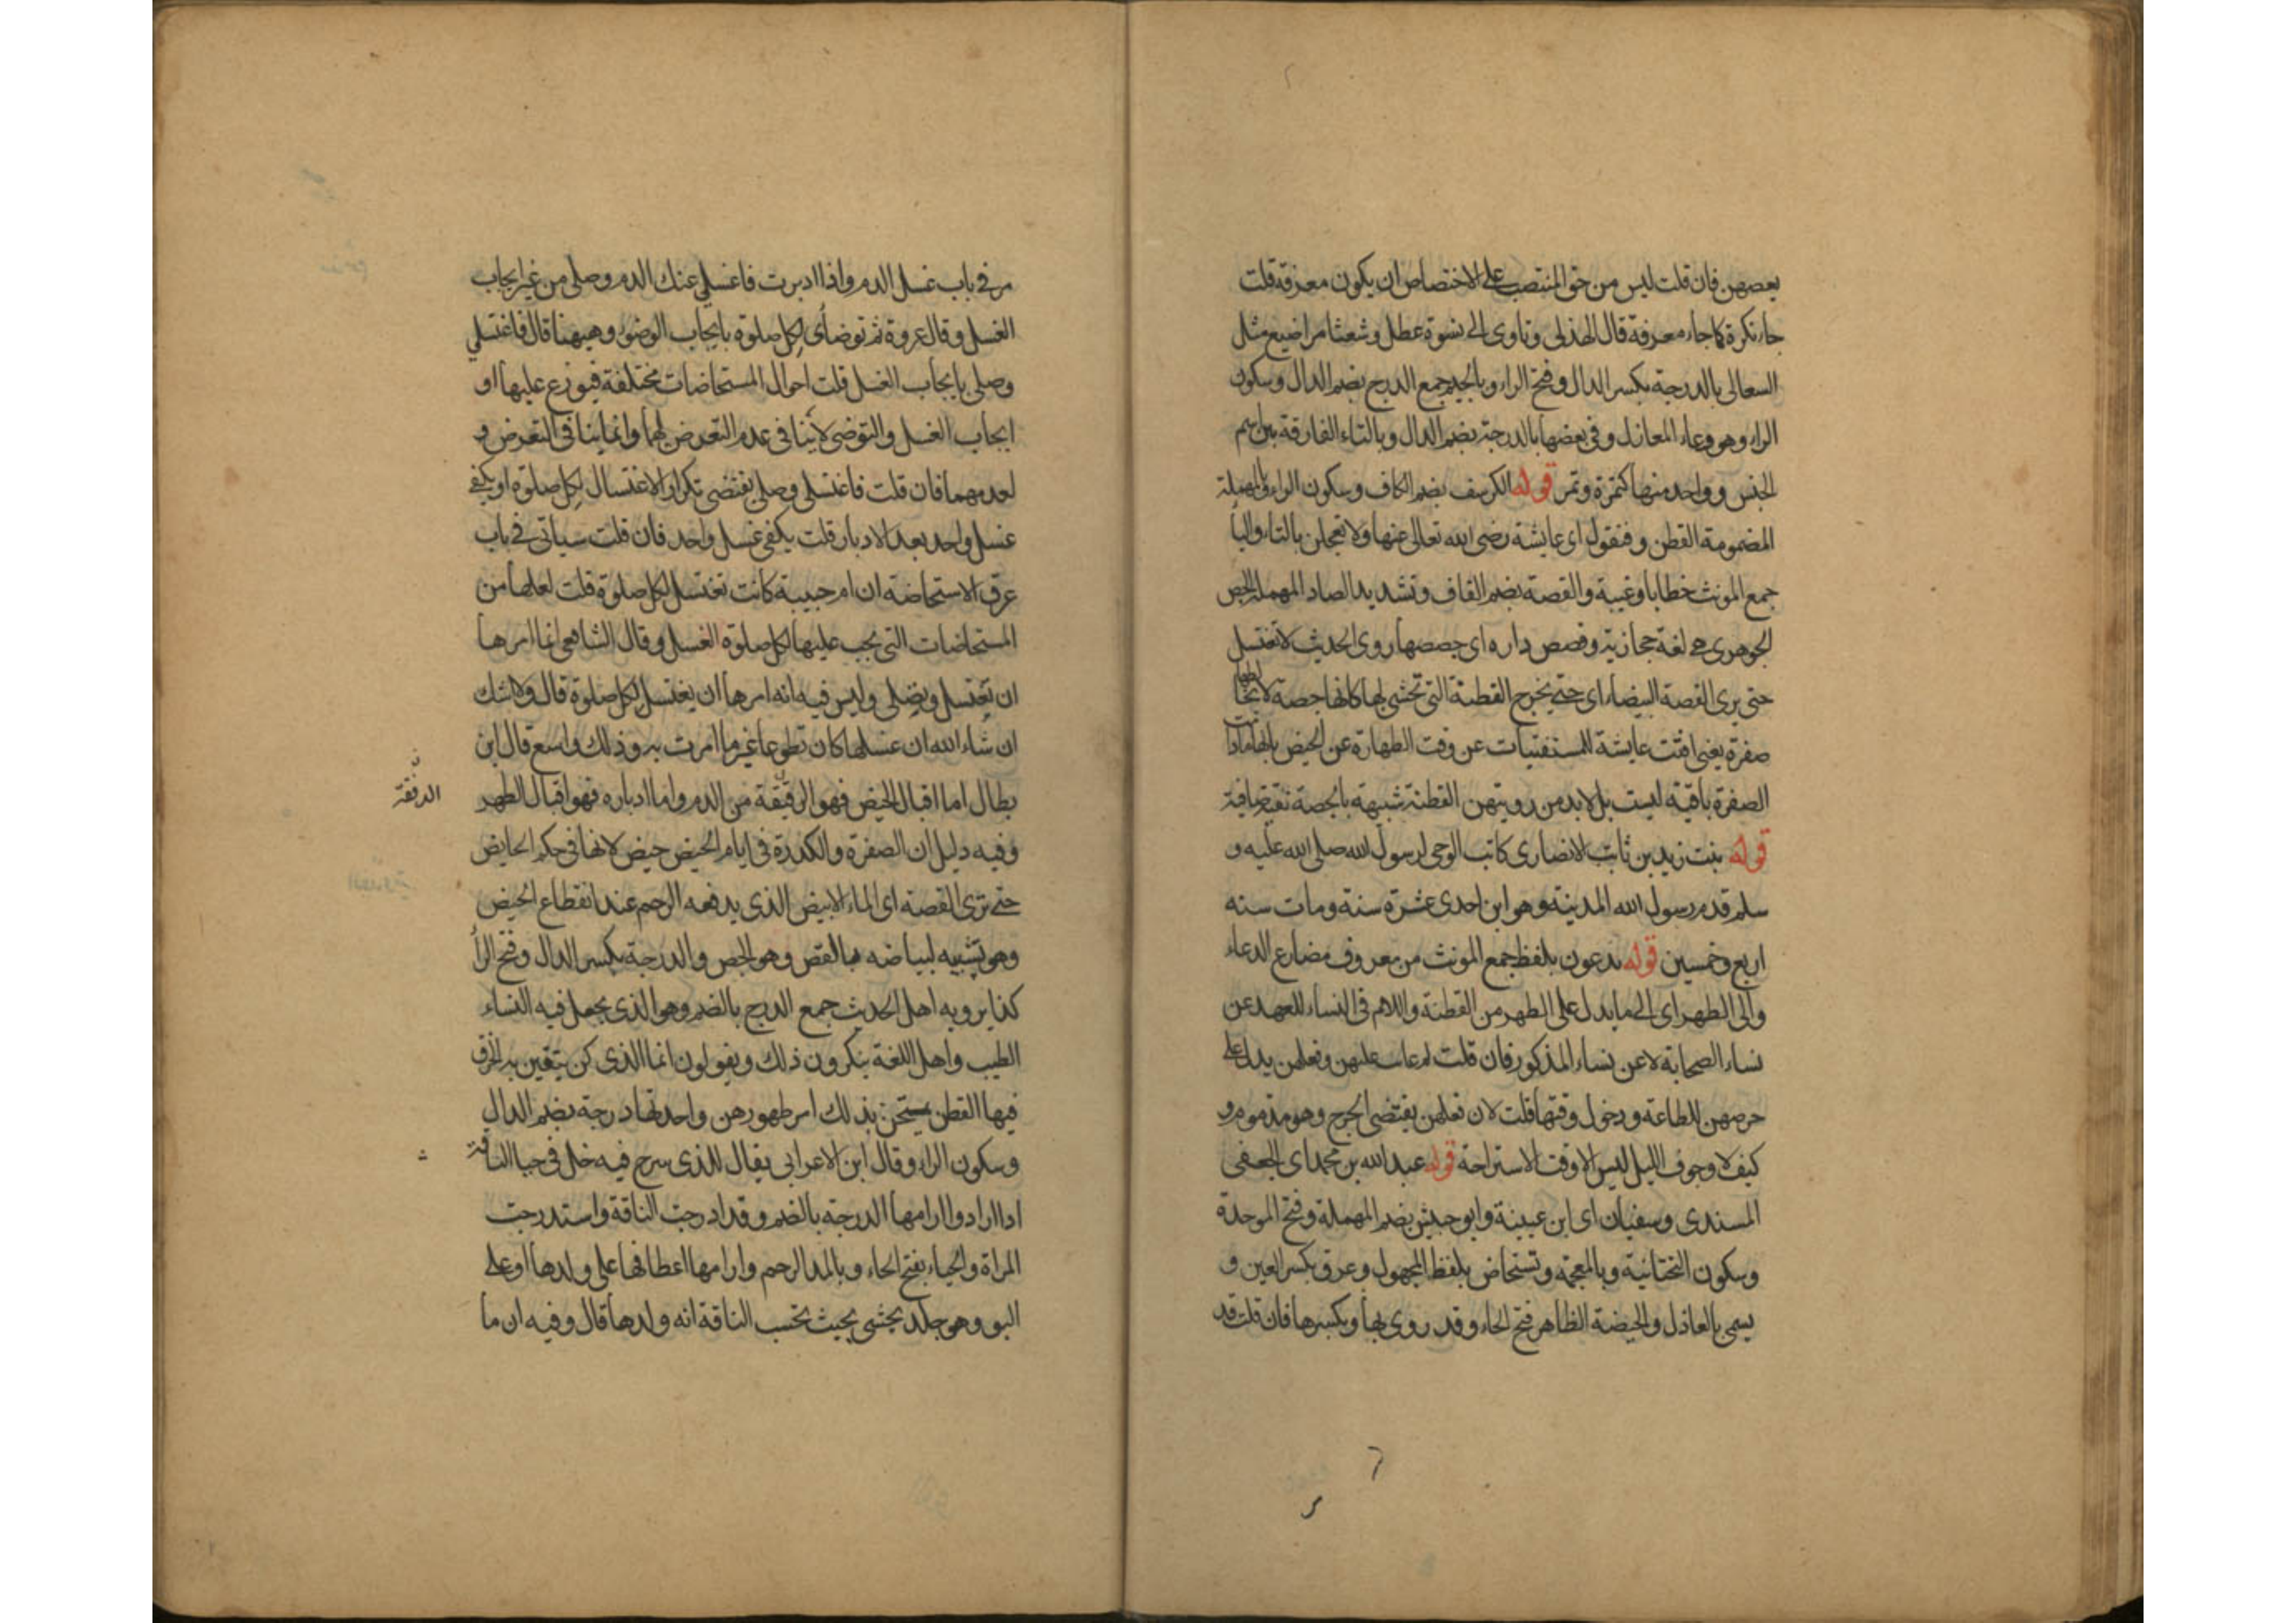 بعضهن فان قلت ليس من حق المنتصب على الاختصاص ان يكون معرفة قلت
جاء نكرة كما جاء معرفة قال الهذلى وتاوى الى نسوة عطل وشعثا مراضيع مثل
السعالى بالدرجة بكسر الدال وفتح الراء وبالجيم جمع الدرج بضم الدال وسكون
الراء وهو وعاء المعازل وفى بعضها بالدرجة بضم الدال وبالتاء الفارقة بين اسم
الجنس وواحد منها كتمرة وتمر قوله الكرسف بضم الكاف وسكون الراء والمهملة
المضمومة القطن وفتقول اى عايشة رضى الله تعالى عنها ولا تعجلن بالتاء والياء
جمع المونث خطابا وغيبة والقصة بضم القاف وتشديد الصاد المهملة الجص
الجوهرى هى لغة حجازية وقصص داره اى جصصها روى الحديث لا تغتسل
حتى يرى القصة البيضاء اى حتى يخرج القطنة التى تحشى بها كانها جصة لا يخالطها
صفرة يعنى افتت عايشة للمستفتيات عن وقت الطهارة عن الحيض بانها مادامت
الصفرة باقية ليست بل لابد من رويتهن القطنة شبيهة بالجصة نقية صافية
قوله بنت زيد بن ثابت الانصارى كاتب الوحى لرسول الله صلى الله عليه و
سلم قدم رسول الله المدينة وهو ابن احدى عشرة سنة ومات سنه
اربع وخمسين قوله يدعون بلفظ جمع المونث من معروف مضارع الدعاء
والى الطهر اى الى ما يدل على الطهر من القطنة واللام فى النساء للعهد عن
نساء الصحابة لا عن نساء المذكور فان قلت لم عاب عليهن وفعلهن يدل على
حرصهن للطاعة ودخول وقتها قلت لان فعلهن يقتضى الحرج وهو مذموم و
كيف لا وجوف الليل ليس الا وقت الاستراحة قوله عبد الله بن محمد اى الجعفى
المسندى وسفيان اى ابن عيينة وابو حبيش بضم المهملة وفتح الموحدة
وسكون التحتانية وبالمعجمة وتستحاض بلفظ المجهول وعرق بكسر العين و
يسمى بالعاذل والحيضة الظاهر فتح الحاء وقد روى بها وبكسرها فان قلت قد
مر فى باب غسل الدم واذا ادبرت فاغسلى عنك الدم وصلى من غير ايجاب
الغسل وقال عروة ثم توضأى لكل صلوة بايجاب الوضوء وههنا قال فاغتسلى
وصلى بايجاب الغسل قلت احوال المستحاضات مختلفة فيوزع عليها او
ايجاب الغسل والتوضى لا ينافى عدم التعرض لهما وانما ينافى التعرض و
لعدمهما فان قلت فاغتسلى وصلى يقتضى تكرار الاغتسال لكل صلوة او يكفى
غسل واحد بعد الادبار قلت يكفى غسل واحد فان قلت سياتى فى باب
عرق الاستحاضة ان ام حبيبة كانت تغتسل لكل صلوة قلت لعلها من
المستحاضات التى يجب عليها لكل صلوة الغسل وقال الشافعى انما امرها
ان تغتسل وتصلى وليس فيه انه امرها ان يغتسل لكل صلوة قال ولا شك
ان شاء الله ان غسلها كان تطوعا غير ما امرت به وذلك واسع قال ابن
بطال اما اقبال الحيض فهو الرقيقة من الدم واما ادباره فهو اقبال الطهر
الدفقة
وفيه دليل ان الصفرة والكدرة فى ايام الحيض حيض لانها فى حكم الحايض
حتى ترى القصة اى الماء الابيض الذى يدفعه الرحم عند انقطاع الحيض
وهو تشبيه لبياضه بالقص وهو الجص والدرجة بكسر الدال وفتح الرأ
كذا يرويه اهل الحديث جمع الدرج بالضم وهو الذى يجعل فيه النساء
الطيب واهل اللغة ينكرون ذلك ويقولون انما الذى كن يتقين به الخرق
فيها القطن يستحن بذلك امر طهورهن واحدتها درجة بضم الدال
وسكون الراء وقال ابن الاعرابى يقال للذى سرح فيه خل فى حيا الناقة
اذا ارادوا ارامها الدرجة بالضم وقد ادرجت الناقة واستدرجت
المراة والحياء بفتح الحاء وبالمد الرحم وارامها اعطافها على ولدها او على
البو وهو جلد يحشى بحيث تحسب الناقة انه ولدها قال وفيه ان ما